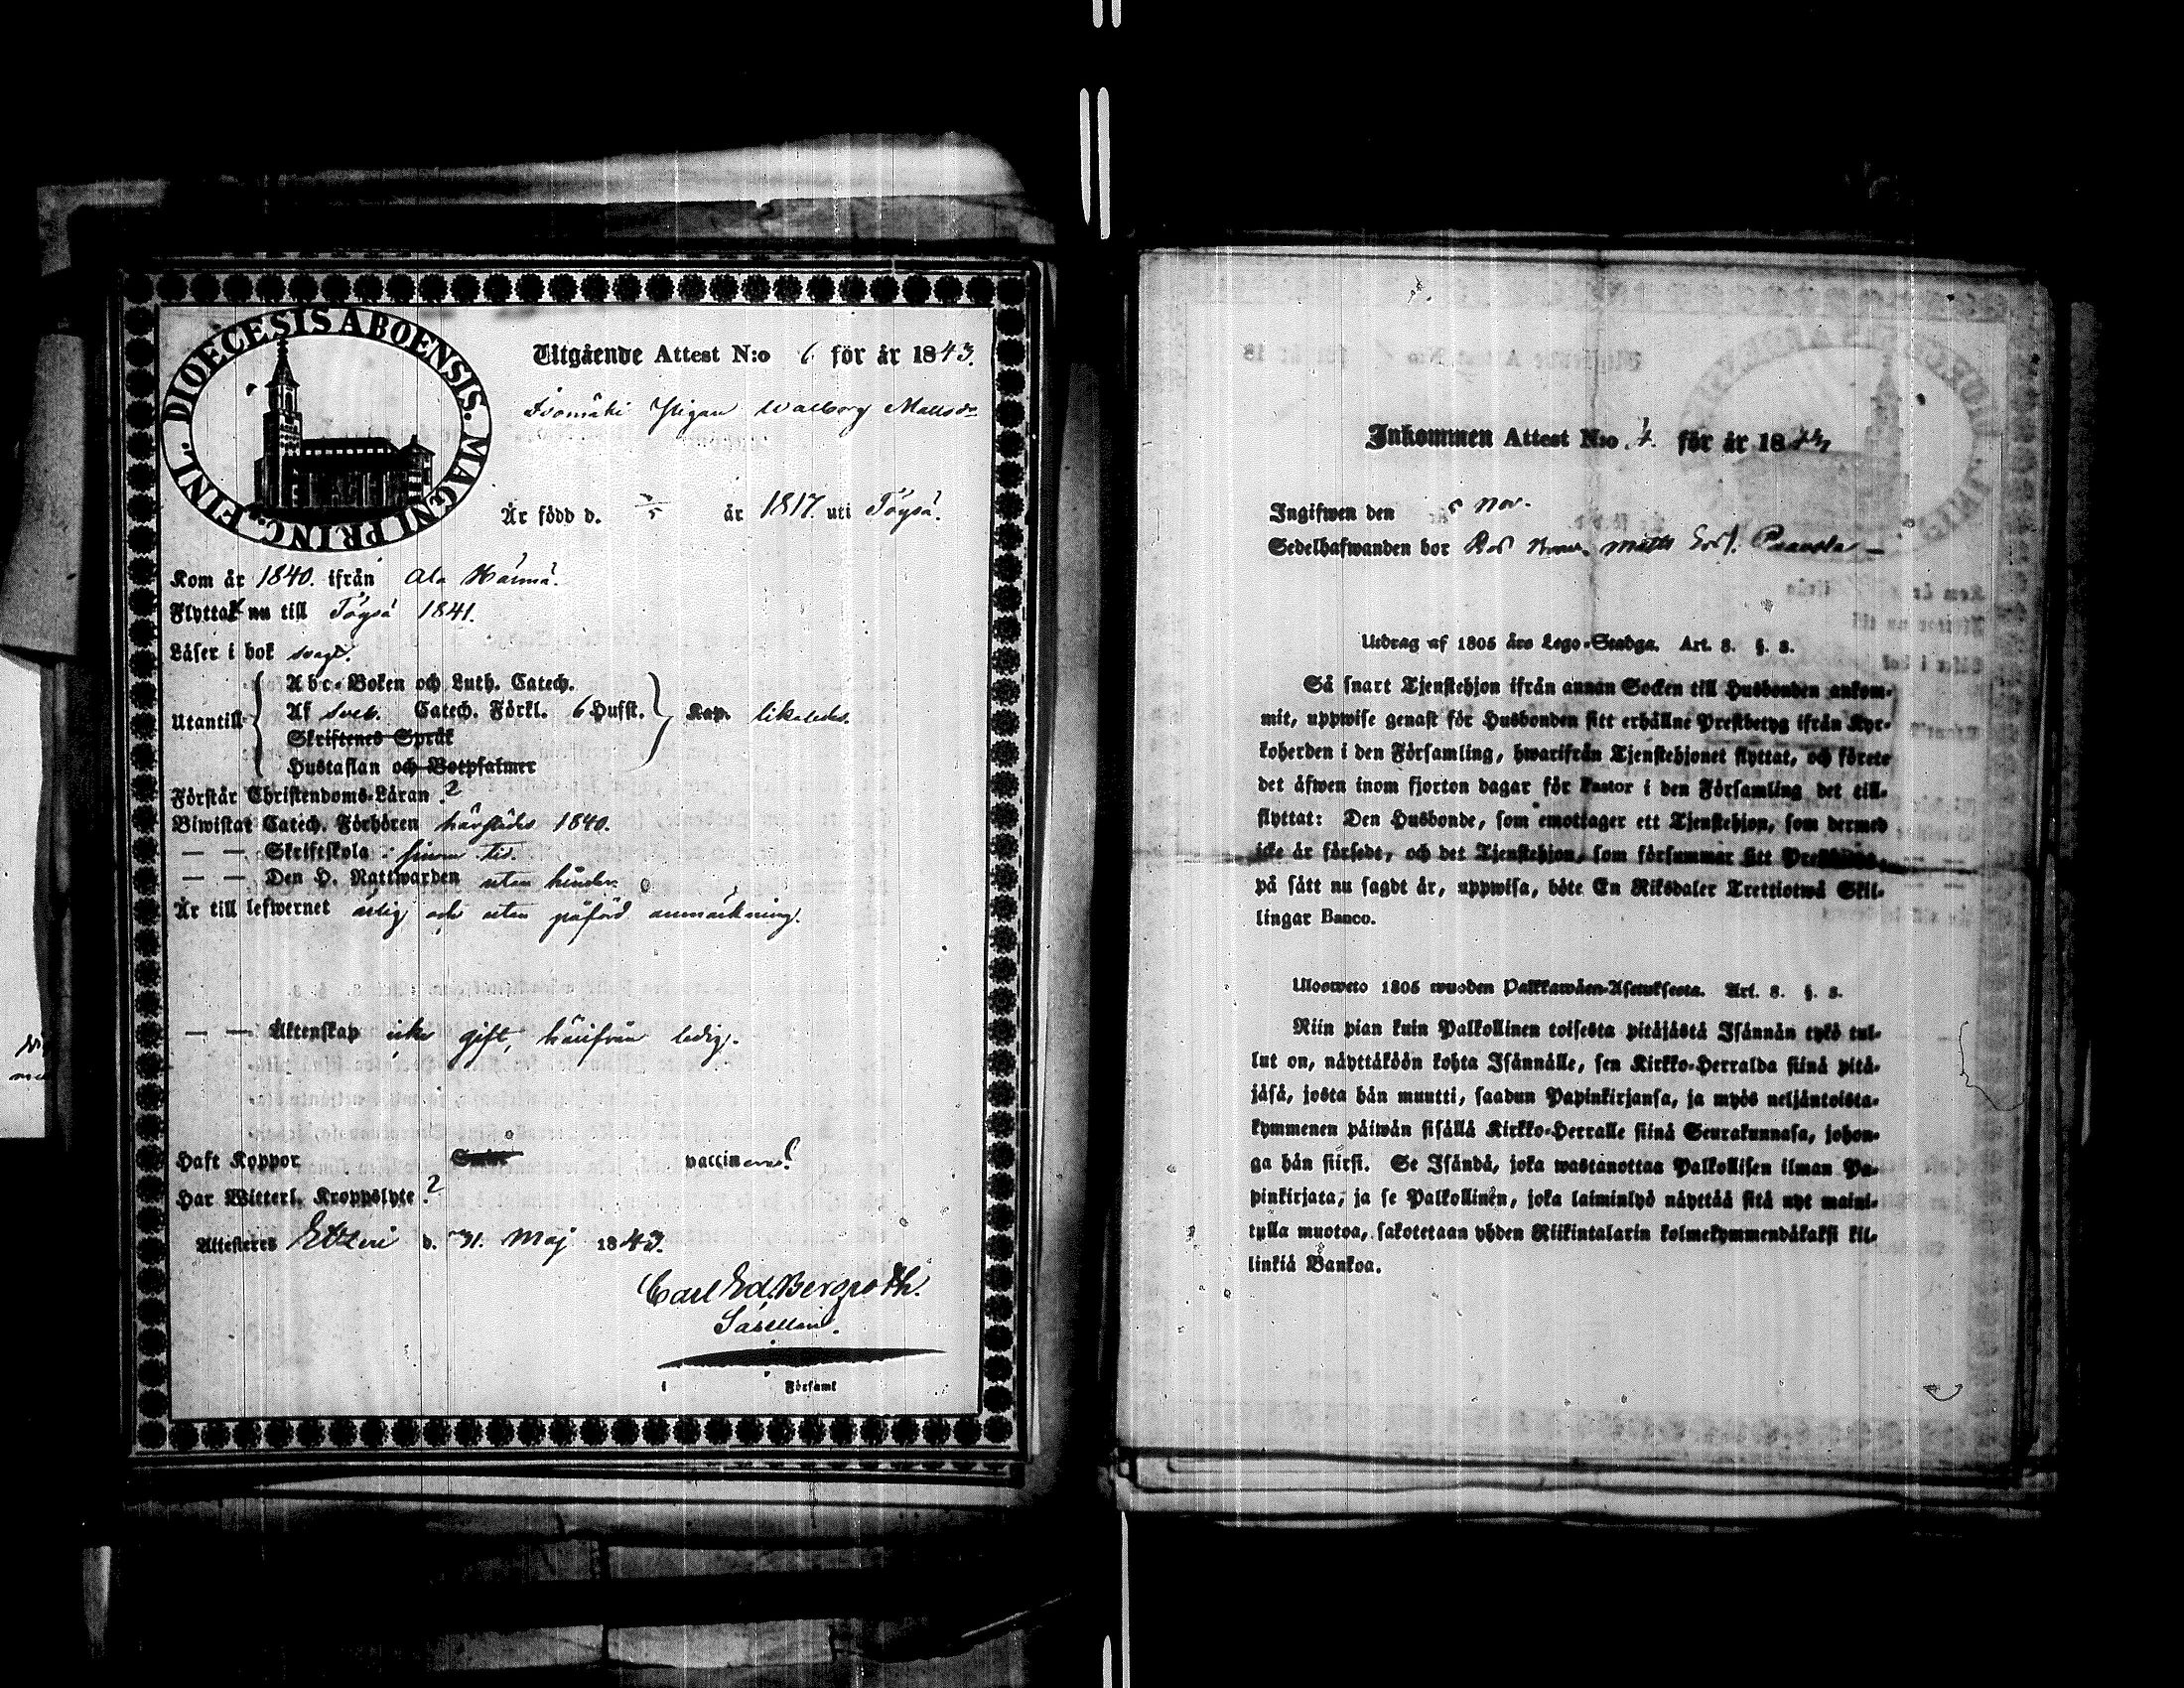 DIOECESIS ABOENSIS. MAGNI PRINC. FINL.
Utgående Attest N:o 6 för år 1843.
Pigan Walborg Mattsdr
Är född d. 7/5 år 1817. uti Töysä.
Kom år 1840. ifrån Ala Härmä.
Flyttat nu till Töysä 1841.
Läser i bok svagt.
Utantill
Abc-Boken och Luth. Catech.
Af Sveb. Catech. Förkl. 6 Hufst. Kap. likaledes.
Skriftenes Språk
Hustaflan och Botpsalmer
Förstår Christendoms-Läran ?
Biwistat Catech. Förhören härstädes 1840.
— — Skriftskola i sinom tid.
— — Den H. Nattwarden utan hinder.
Är till lefwernet ärlig och utan påförd anmärkning.
— — Äktenskap icke gift, härifrån ledig.
Haft Koppor vaccinerad?
Har Witterl. Kroppslyte ?
Attesteras Etseri d. 31. Maj 1843.
Carl Ed. Bergroth.
i Församl
Inkommen Attest N:o för år 18
Ingifwen den 5 Nov.
Sedelhafwanden bor Matts
Utdrag af 1805 års Lego-Stadga. Art. 8. §. 8.
Så snart Tjenstehjon ifrån annan Socken till Husbonden ankom-
mit, uppwise genast för Husbonden sitt erhållne Prestbetyg ifrån Kyr-
koherden i den Församling, hwarifrån Tjenstehjonet flyttat, och förete
det äfwen inom fjorton dagar för Pastor i den Församling det till-
flyttat: Den Husbonde, som emottager ett Tjenstehjon, som dermed
icke är försedt, och det Tjenstehjon, som försummar sitt
på sätt nu sagdt är, uppwisa, böte En Riksdaler Trettiotwå Skil-
lingar Banco.
Ulosweto 1805 wuoden Palkkawäen-Asetuksesta. Art. 8. §. 8.
Niin pian kuin Palkollinen toisesta pitäjästä Isännän tykö tul-
lut on, näyttäköön kohta Isännälle, sen Kirkko-Herralda siinä pitä-
jäsä, josta hän muutti, saadun Papinkirjansa, ja myös neljäntoista-
kymmenen päiwän sisällä Kirkko-Herralle siinä Seurakunnasa, johon-
ga hän siirsi. Se Isändä, joka wastanottaa Palkollisen ilman Pa-
pinkirjata, ja se Palkollinen, joka laiminlyö näyttää sitä nyt maini-
tulla muotoa, sakotetaan yhden Riikintalarin kolmekymmendäkaksi kil-
linkiä Bankoa.